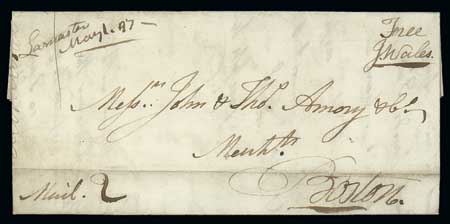 Lancaster
May 1. 97
Free
J. Wales.
Messrs. John & Thos. Amory & Co.
Merchts.
Boston.
Mail. 2